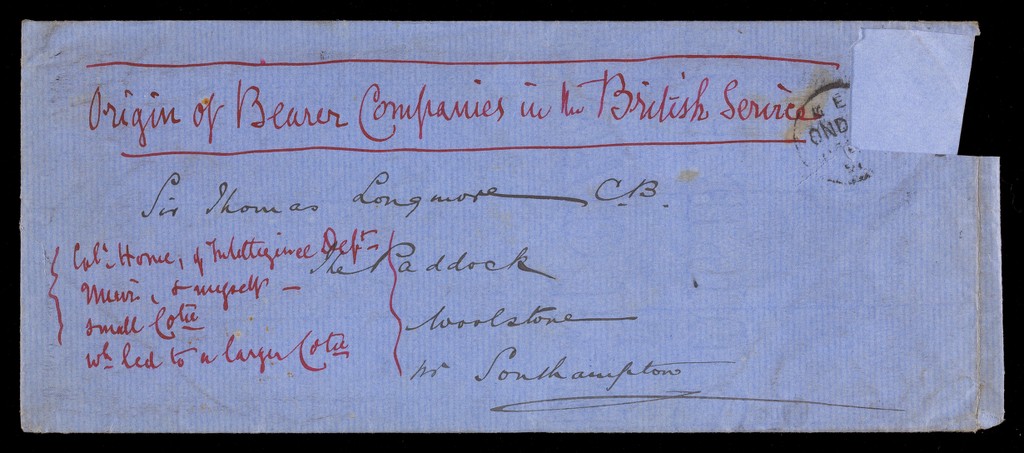 Origin of Bearer Companies in the British Service
OND
Sir Thomas Longmore C.B.
The Paddock
Woolstone
nr Southampton
Col. Home, of Intelligence Dept.
Muir, & myself –
small Cotee
wh. led to a larger Cotee